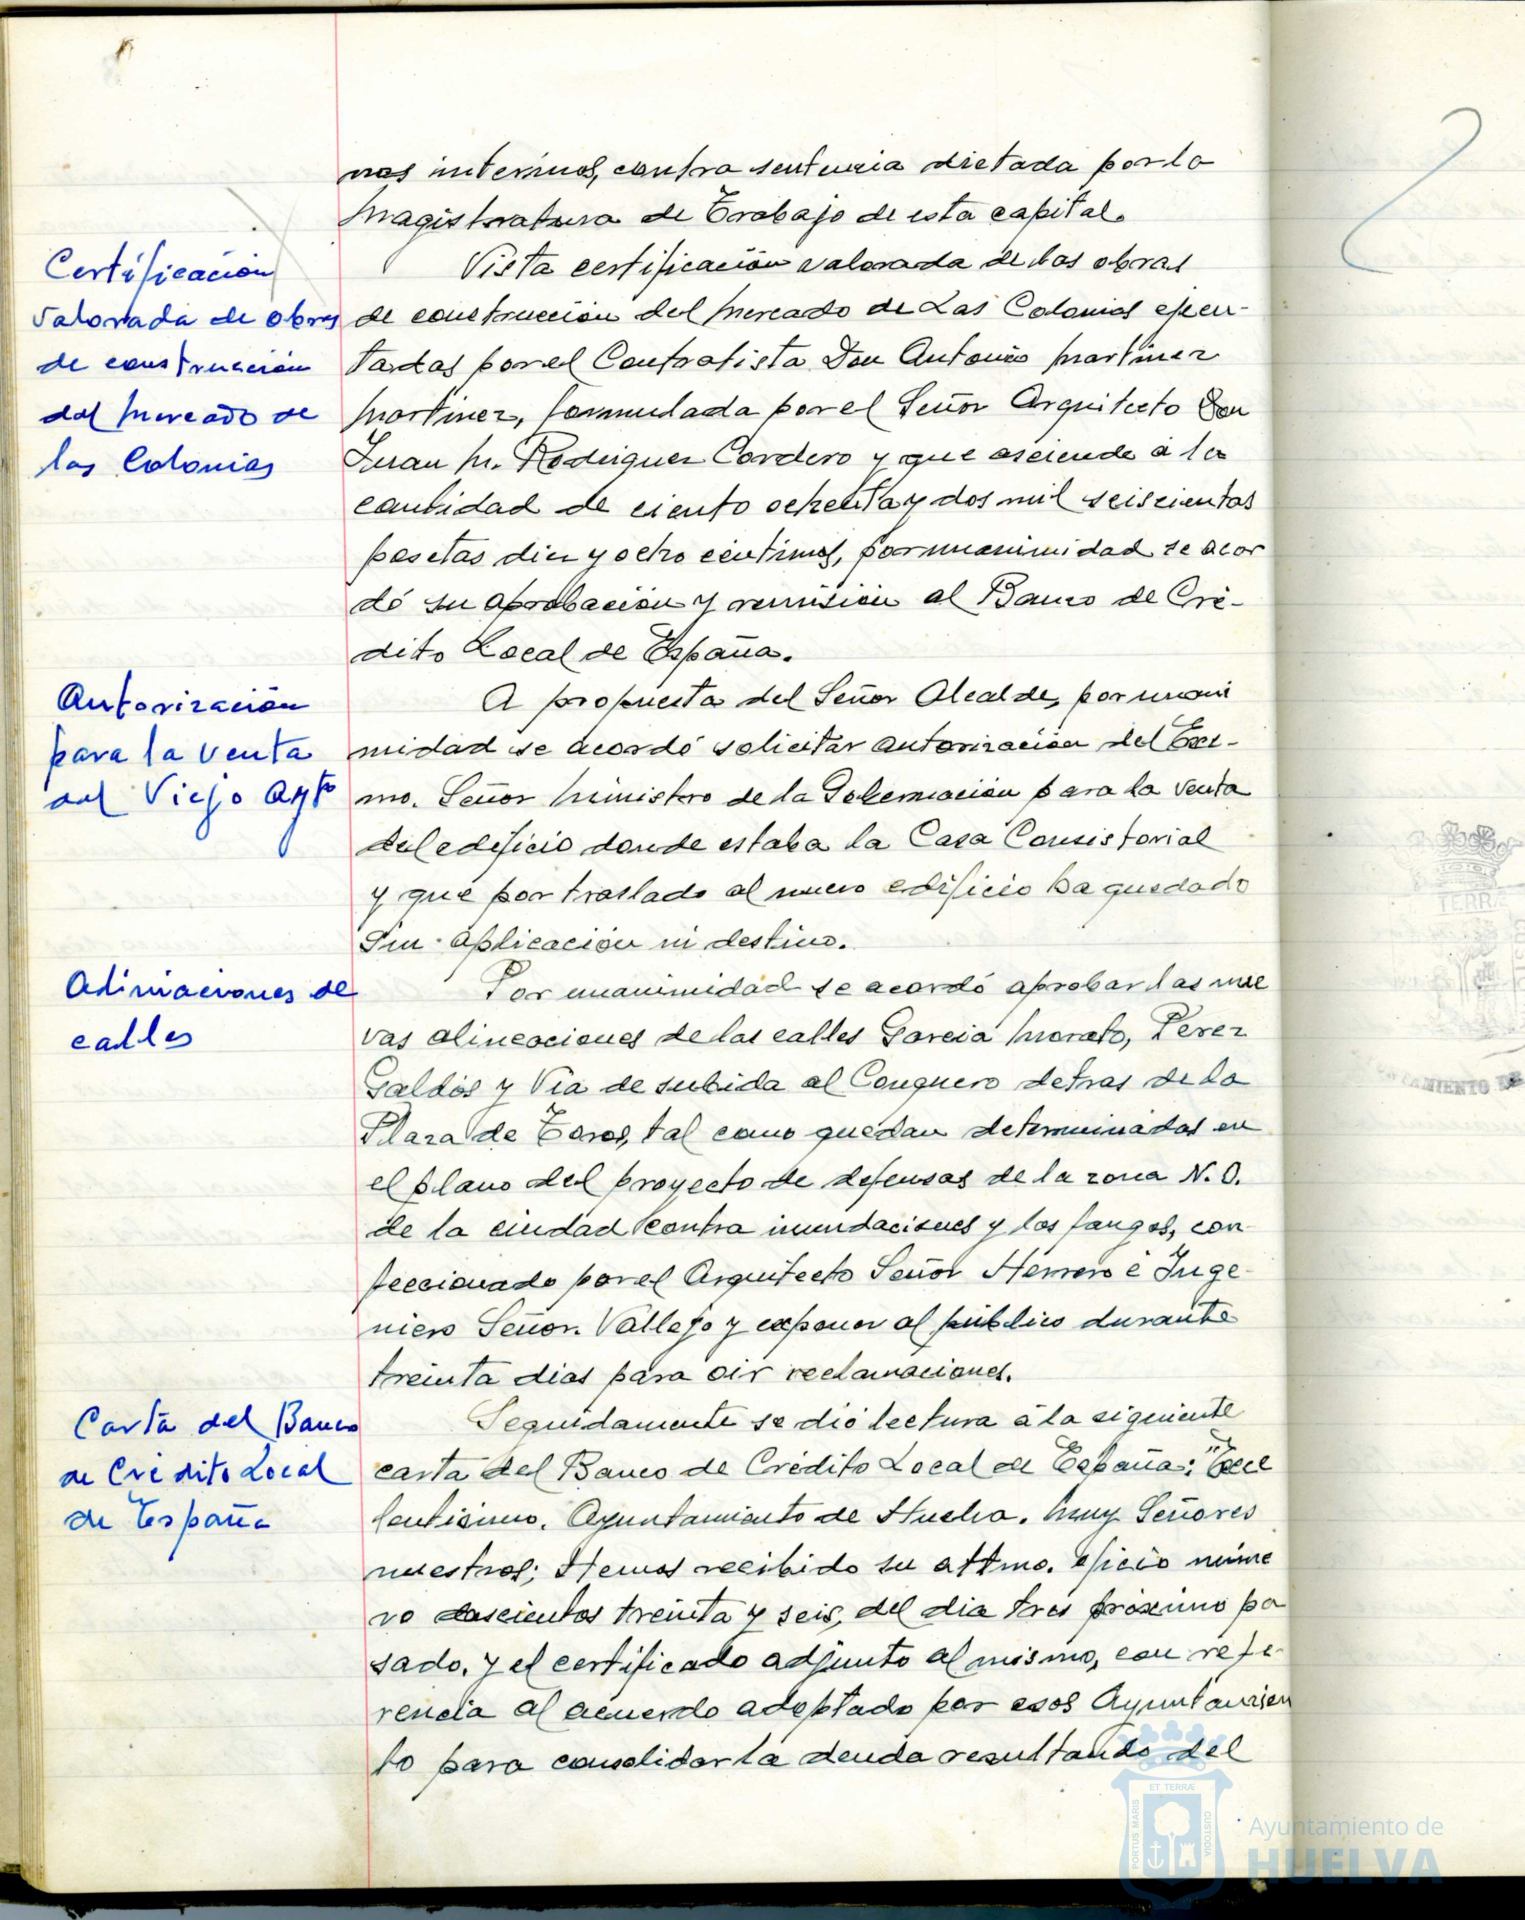 nos interinos, contra sentencia dictada por la
Magistratura de Trabajo de esta capital.
Certificación
valorada de obras
de construcción
del Mercado de
las Colonias
Vista certificación valorada de las obras
de construcción del Mercado de Las Colonias ejecu-
tadas por el Contratista Don Antonio Martinez
Martinez, formulada por el Señor Arquitecto Don
Juan M. Rodriguez Cordero y que asciende á la
cantidad de ciento ochenta y dos mil seiscientas
pesetas diez y ocho céntimos, por unanimidad se acor
dó su aprobación y remisión al Banco de Cré-
dito Local de España.
Autorización
para la venta
del Viejo Aytº
A propuesta del Señor Alcalde, por unani
midad se acordó solicitar autorización del Exc-
mo. Señor Ministro de la Gobernación para la venta
del edificio donde estaba la Casa Consistorial
y que por traslado al nuevo edificio ha quedado
sin aplicación ni destino.
Aliniaciones de
calles
Por unanimidad se acordó aprobar las nue
vas alineaciones de las calles Garcia Morato, Perez
Galdós y Via de subida al Conquero detras de la
Plaza de Toros, tal como quedan determinadas en
el plano del proyecto de defensas de la zona N.O.
de la ciudad contra inundaciones y los fangos, con-
feccionado por el Arquitecto Señor Herrero é Inge-
niero Señor Vallejo y exponer al público durante
treinta dias para oir reclamaciones.
Carta del Banco
de Crédito Local
de España
Seguidamente se dió lectura á la siguiente
carta del Banco de Crédito Local de España: "Exce
lentisimo. Ayuntamiento de Huelva. Muy Señores
nuestros; Hemos recibido su attmo. oficio núme
ro doscientos treinta y seis, del dia tres próximo pa
sado, y el certificado adjunto al mismo, con refe-
rencia al acuerdo adoptado por esos Ayuntamien
to para consolidar la deuda resultando del
TERRÆ
ET TERRÆ
PORTUS MARIS
CUSTODIA
Ayuntamiento de
HUELVA